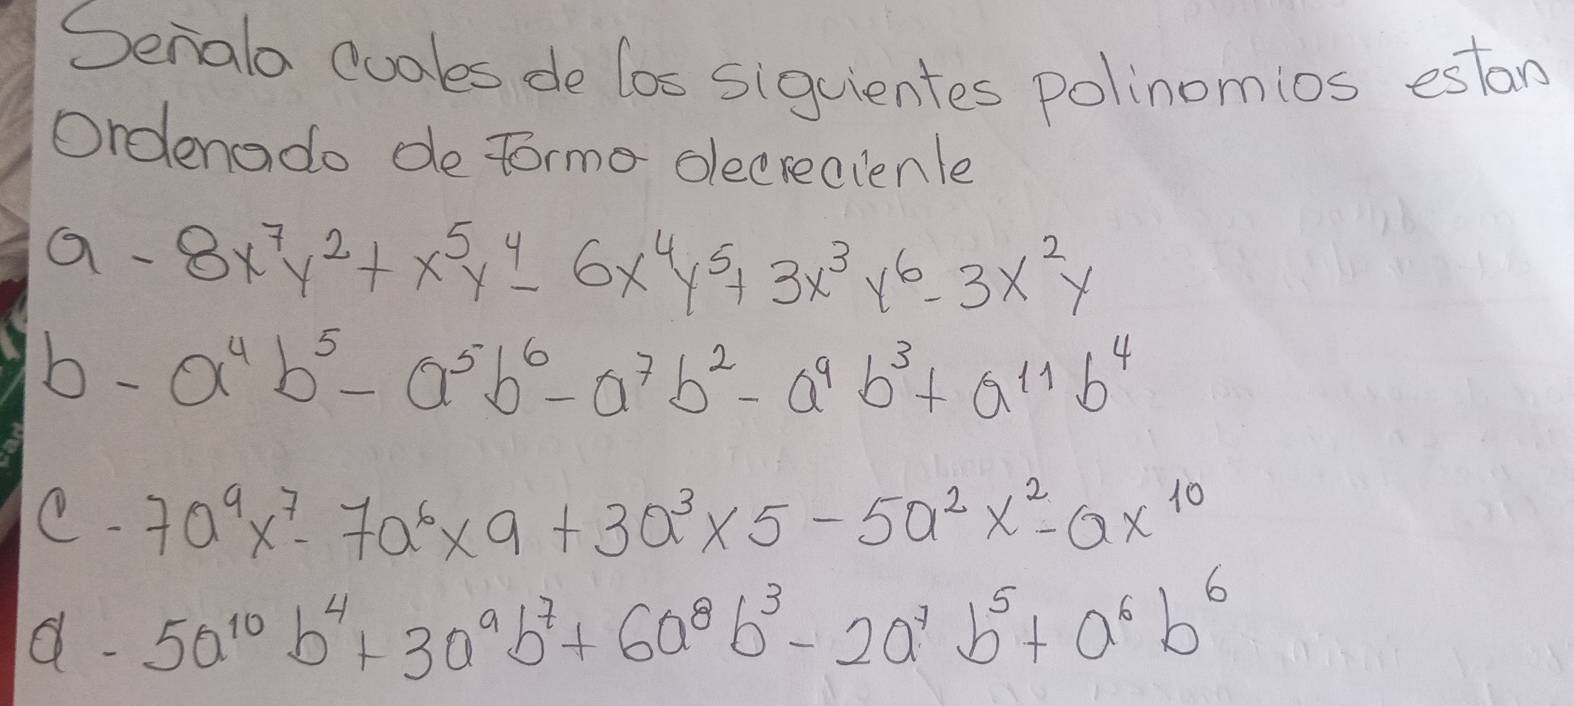 Señala cuales de los siguientes polinomios estan
Ordenado de forma decreciente
a - 8x⁷y² + x⁵y⁴ - 6x⁴y⁵ + 3x³y⁶ - 3x²y
b - a⁴b⁵ - a⁵b⁶ - a⁷b² - a⁹b³ + a¹¹b⁴
c - 7a⁹x⁷ - 7a⁶x9 + 3a³x5 - 5a²x² - ax¹⁰
d - 5a¹⁰b⁴ + 3a⁹b⁷ + 6a⁸b³ - 2a⁷b⁵ + a⁶b⁶